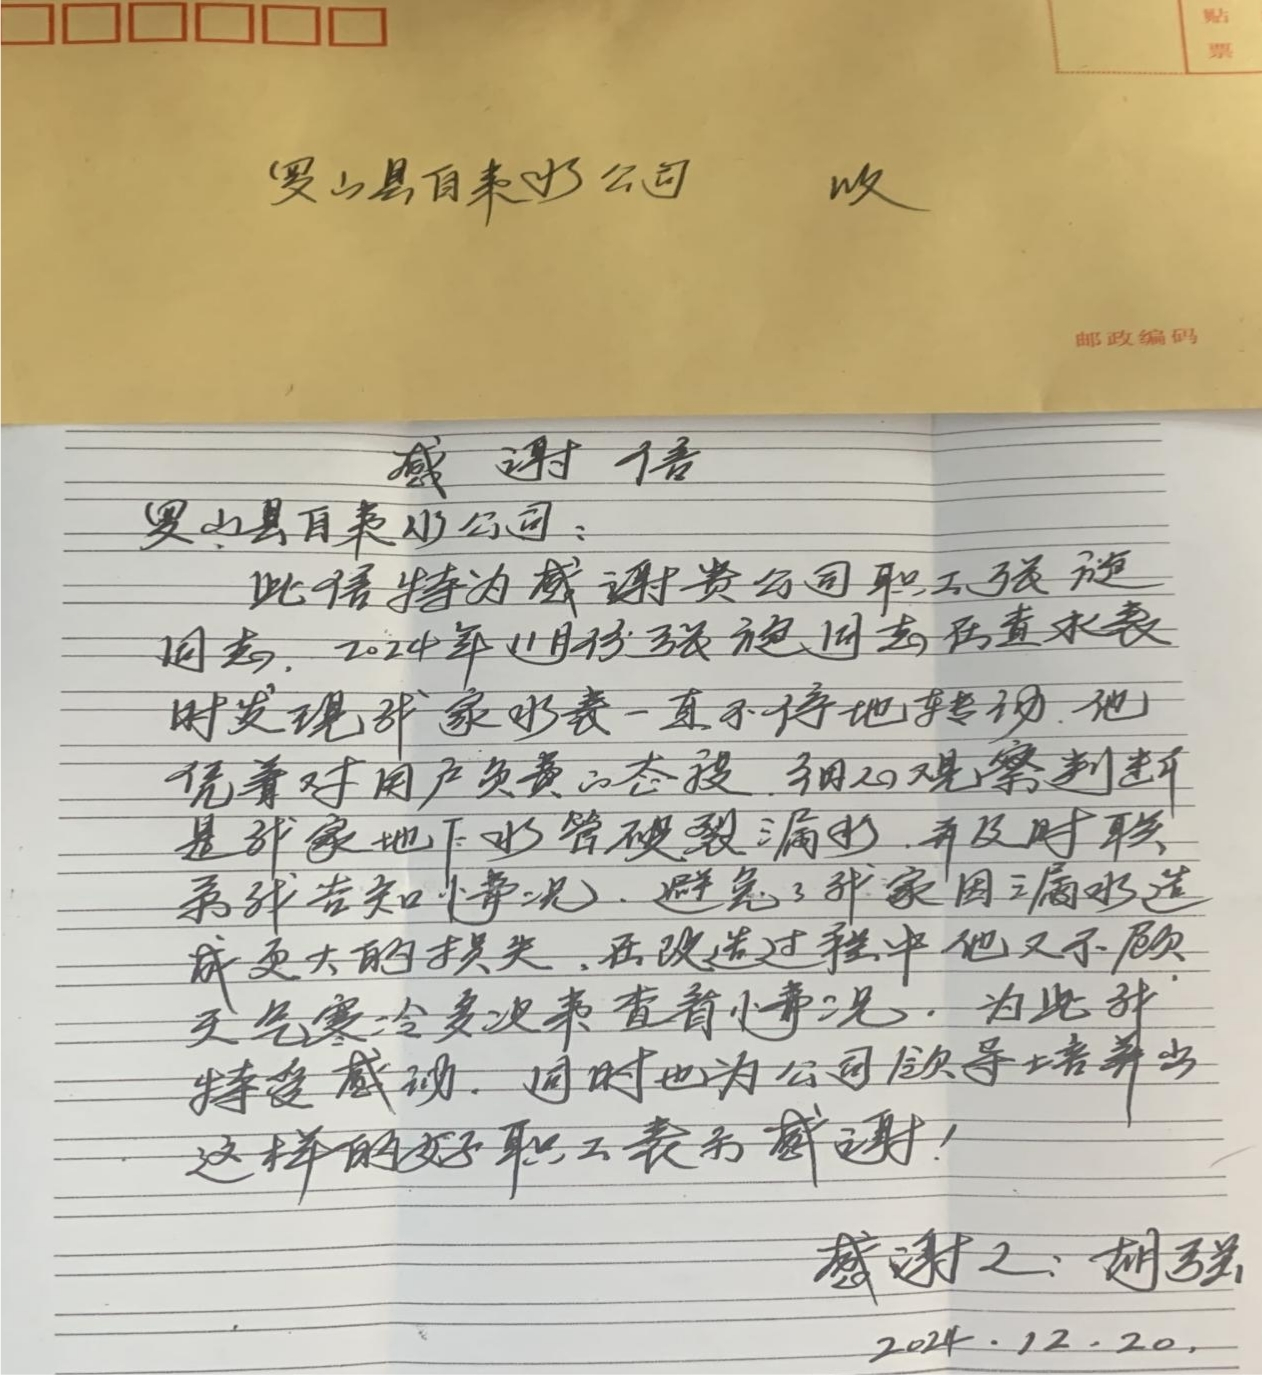 贴
票
罗山县自来水公司 收
邮政编码
感谢信
罗山县自来水公司:
此信特为感谢贵公司职工张旋
同志. 2024年11月份张旋同志在查水表
时发现我家水表一直不停地转动.他
凭着对用户负责的态度.细心观察判断
是我家地下水管破裂漏水.并及时联
系我告知情况.避免了我家因漏水造
成更大的损失.在改造过程中他又不顾
天气寒冷多次来查看情况.为此我
特受感动.同时也为公司领导培养出
这样的好职工表示感谢!
感谢人:胡强
2024.12.20.